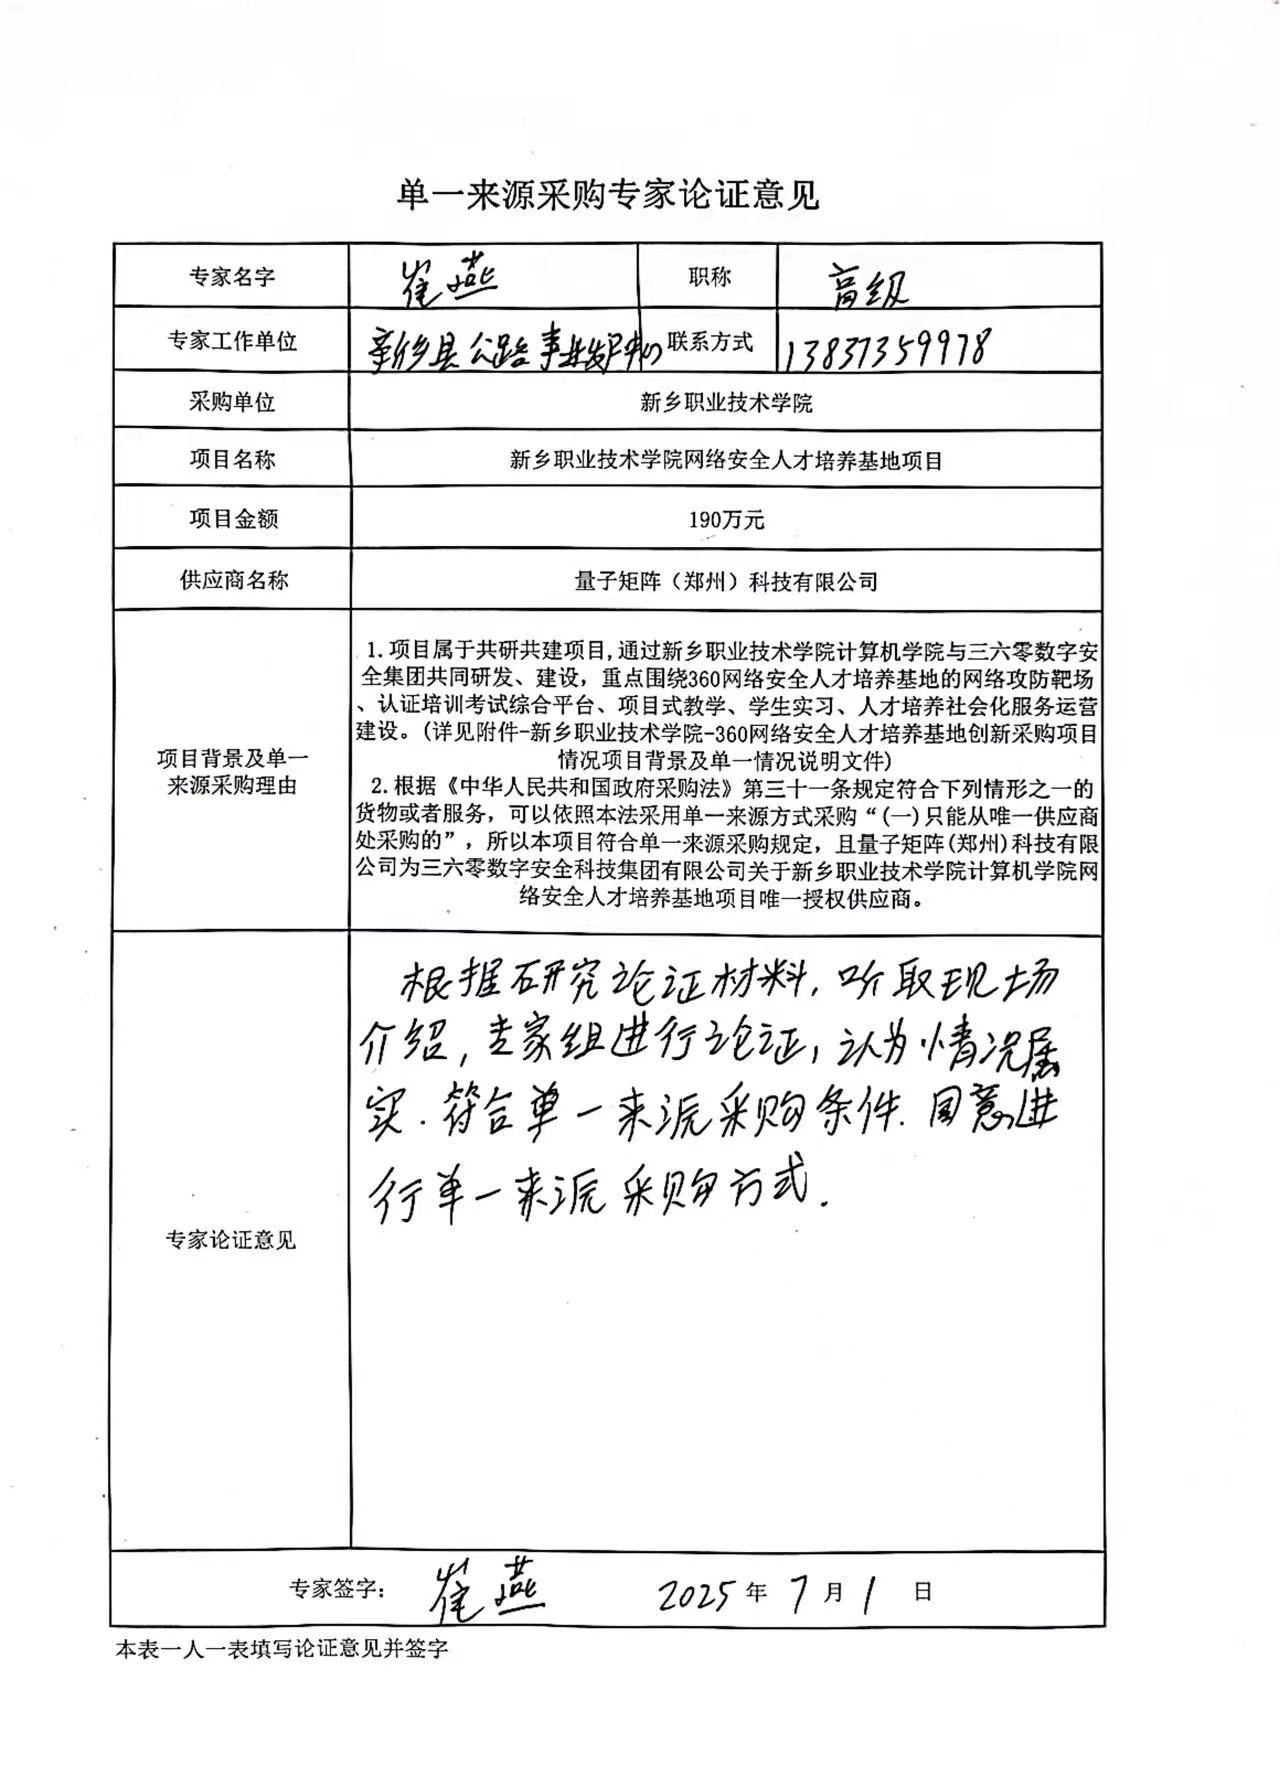 单一来源采购专家论证意见
专家名字 崔燕 职称 高级
专家工作单位 新乡县公路事业发展中心 联系方式 13837359978
采购单位 新乡职业技术学院
项目名称 新乡职业技术学院网络安全人才培养基地项目
项目金额 190万元
供应商名称 量子矩阵（郑州）科技有限公司
项目背景及单一
来源采购理由
1.项目属于共研共建项目,通过新乡职业技术学院计算机学院与三六零数字安
全集团共同研发、建设，重点围绕360网络安全人才培养基地的网络攻防靶场
、认证培训考试综合平台、项目式教学、学生实习、人才培养社会化服务运营
建设。(详见附件-新乡职业技术学院-360网络安全人才培养基地创新采购项目
情况项目背景及单一情况说明文件)
2.根据《中华人民共和国政府采购法》第三十一条规定符合下列情形之一的
货物或者服务，可以依照本法采用单一来源方式采购“(一)只能从唯一供应商
处采购的”，所以本项目符合单一来源采购规定，且量子矩阵(郑州)科技有限
公司为三六零数字安全科技集团有限公司关于新乡职业技术学院计算机学院网
络安全人才培养基地项目唯一授权供应商。
专家论证意见
根据研究论证材料，听取现场
介绍，专家组进行论证，认为情况属
实．符合单一来源采购条件．同意进
行单一来源采购方式．
专家签字： 崔燕 2025年7月1日
本表一人一表填写论证意见并签字